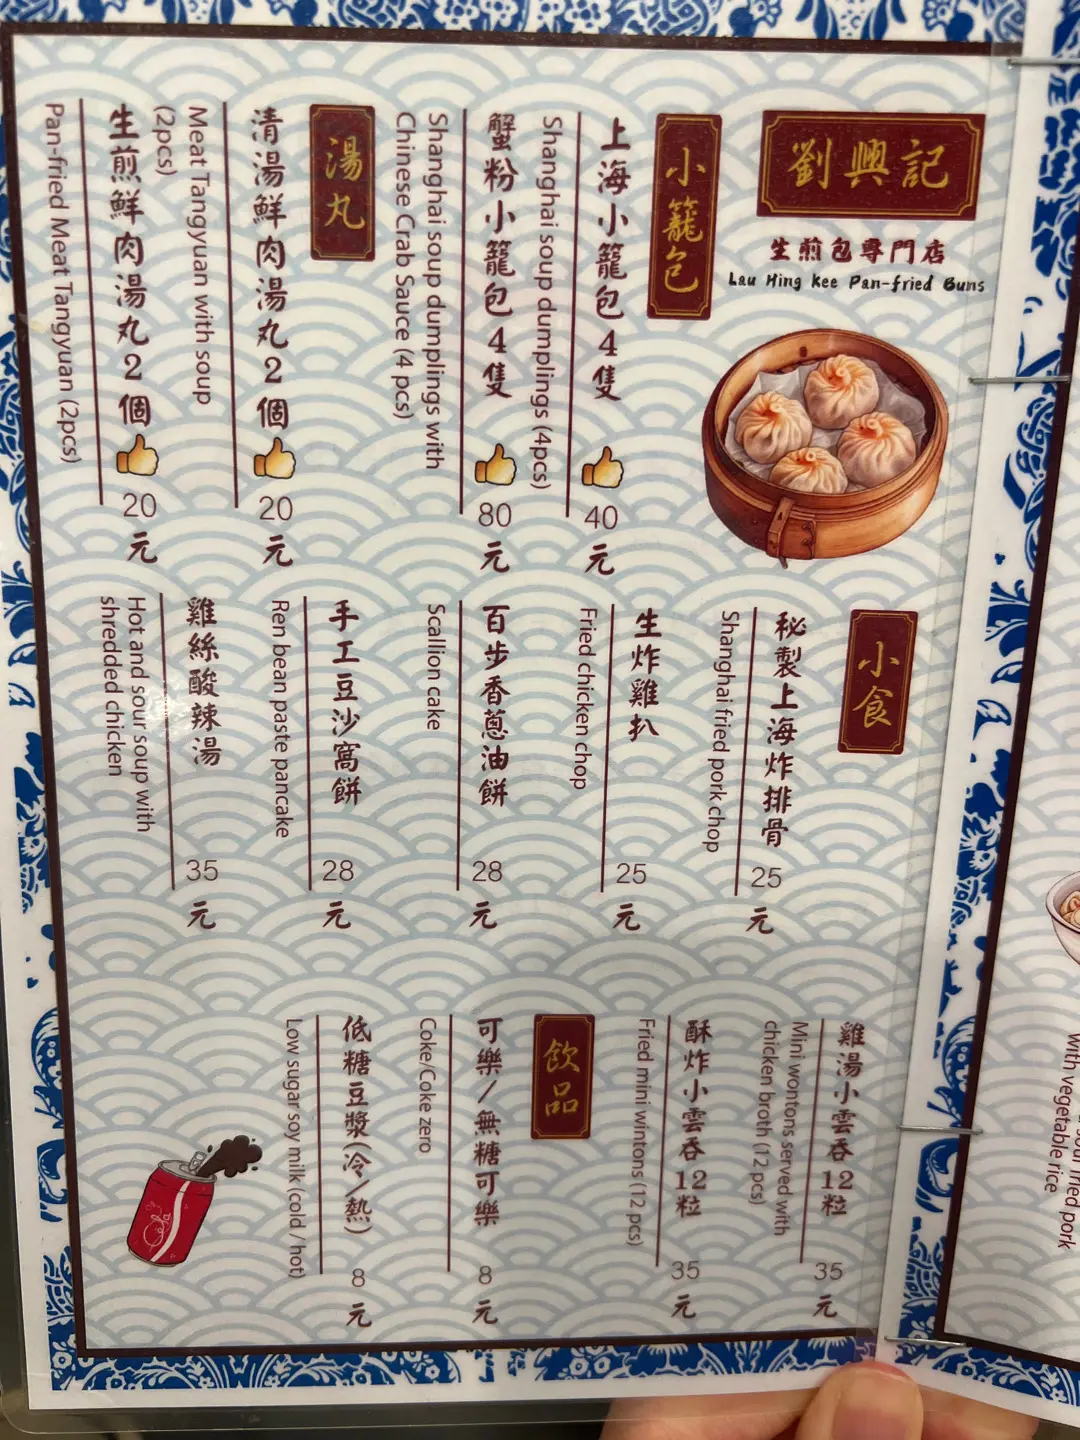 劉興記
生煎包專門店
Lau Hing Kee Pan-fried Buns
小籠包
上海小籠包4隻
40元
Shanghai soup dumplings (4pcs)
蟹粉小籠包4隻
80元
Shanghai soup dumplings with
Chinese Crab Sauce (4 pcs)
湯丸
清湯鮮肉湯丸2個
20元
Meat Tangyuan with soup
(2pcs)
生煎鮮肉湯丸2個
20元
Pan-fried Meat Tangyuan (2pcs)
小食
秘製上海炸排骨
25元
Shanghai fried pork chop
生炸雞扒
25元
Fried chicken chop
百步香蔥油餅
28元
Scallion cake
手工豆沙窩餅
28元
Ren bean paste pancake
雞絲酸辣湯
35元
Hot and sour soup with
shredded chicken
雞湯小雲吞12粒
35元
Mini wontons served with
chicken broth (12 pcs)
酥炸小雲吞12粒
35元
Fried mini wintons (12 pcs)
飲品
可樂/無糖可樂
8元
Coke/Coke zero
低糖豆漿(冷/熱)
8元
Low sugar soy milk (cold / hot)
Cola
fried pork
with vegetable rice